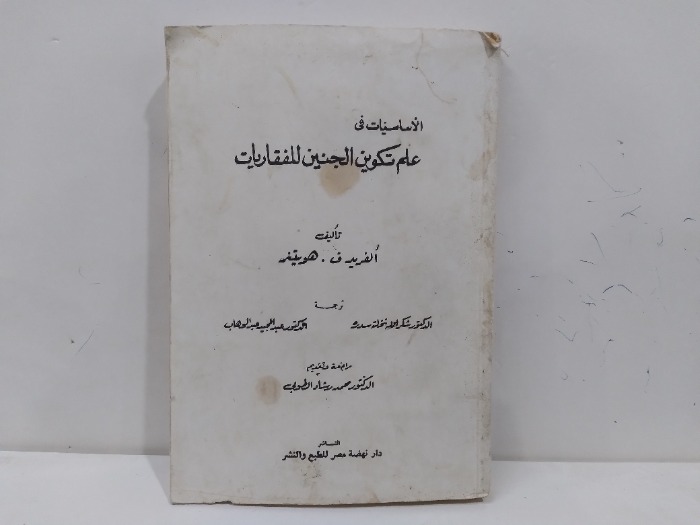 الأساسيات فى
علم تكوين الجنين للفقاريات
تأليف
ألفريد ف . هويتنر
ترجمة
الدكتور شكر الله نخلة سدره الدكتور عبد المجيد عبد الوهاب
مراجعة وتقديم
الدكتور محمد رشاد الطوبي
الناشر
دار نهضة مصر للطبع والنشر